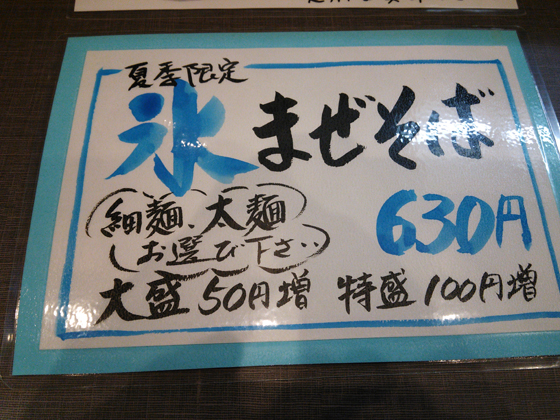 夏季限定
氷まぜそば
細麺、太麺
お選び下さい
630円
大盛50円増 特盛100円増